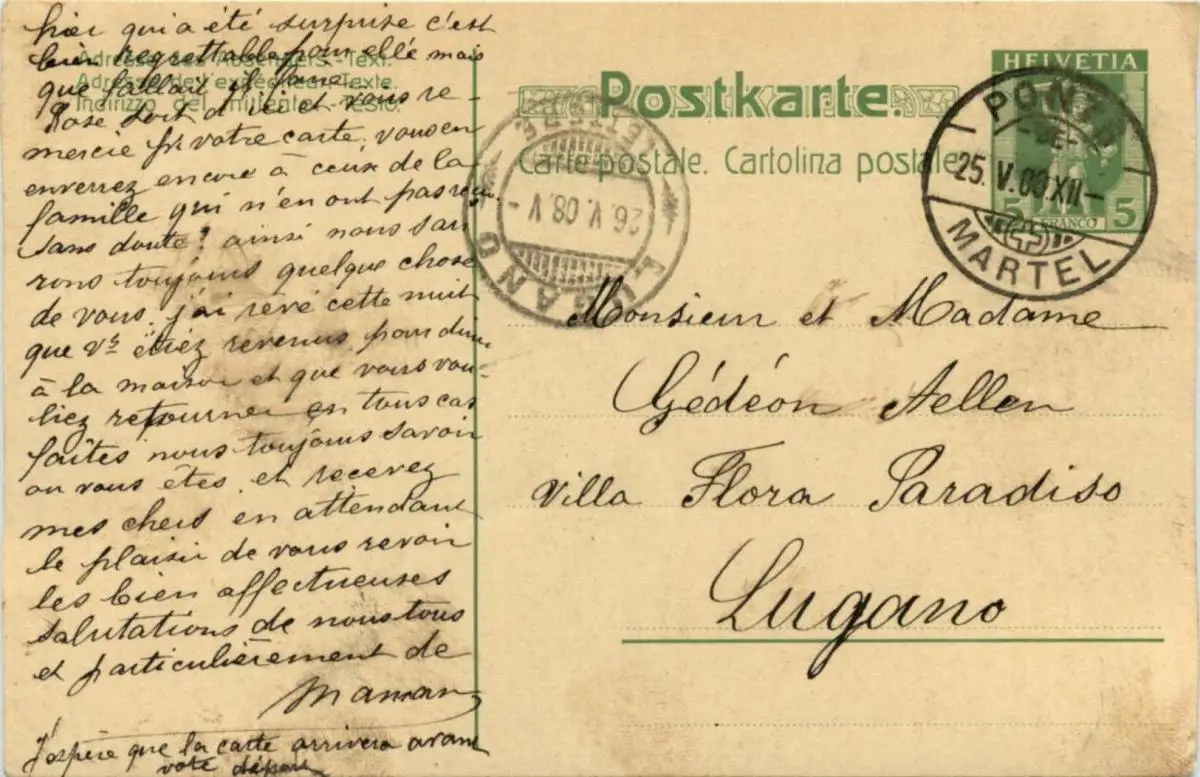 hier qui a été surprise c'est
bien regrettable pour elle mais
que fallait il faire
Rose soit d'ici et vous re-
mercie pr votre carte, vous en
enverrez encore à ceux de la
famille qui n'en ont pas reçu
sans doute? ainsi nous sau
rons toujours quelque chose
de vous, j'ai revé cette nuit
que vs étiez revenus pour din
à la maison et que vous vou-
liez retourner en tous cas
faites nous toujours savoir
ou vous êtes et recevez
mes chers en attendant
le plaisir de vous revoir
les bien affectueuses
salutations de nous tous
et particulièrement de
Maman
J'espère que la carte arrivera avant
votre départ
Adresse des Absenders.-Text.
Adresse de l'expéditeur.-Texte.
Indirizzo del mittente.-Testo.
Postkarte.
Carte postale. Cartolina postale.
HELVETIA
5 FRANCO 5
PONTS
MARTEL
25.V.08.XII-
LUGANO
LETTERE
26.V.08.V-
Monsieur et Madame
Gédéon Aellen
Villa Flora Paradiso
Lugano